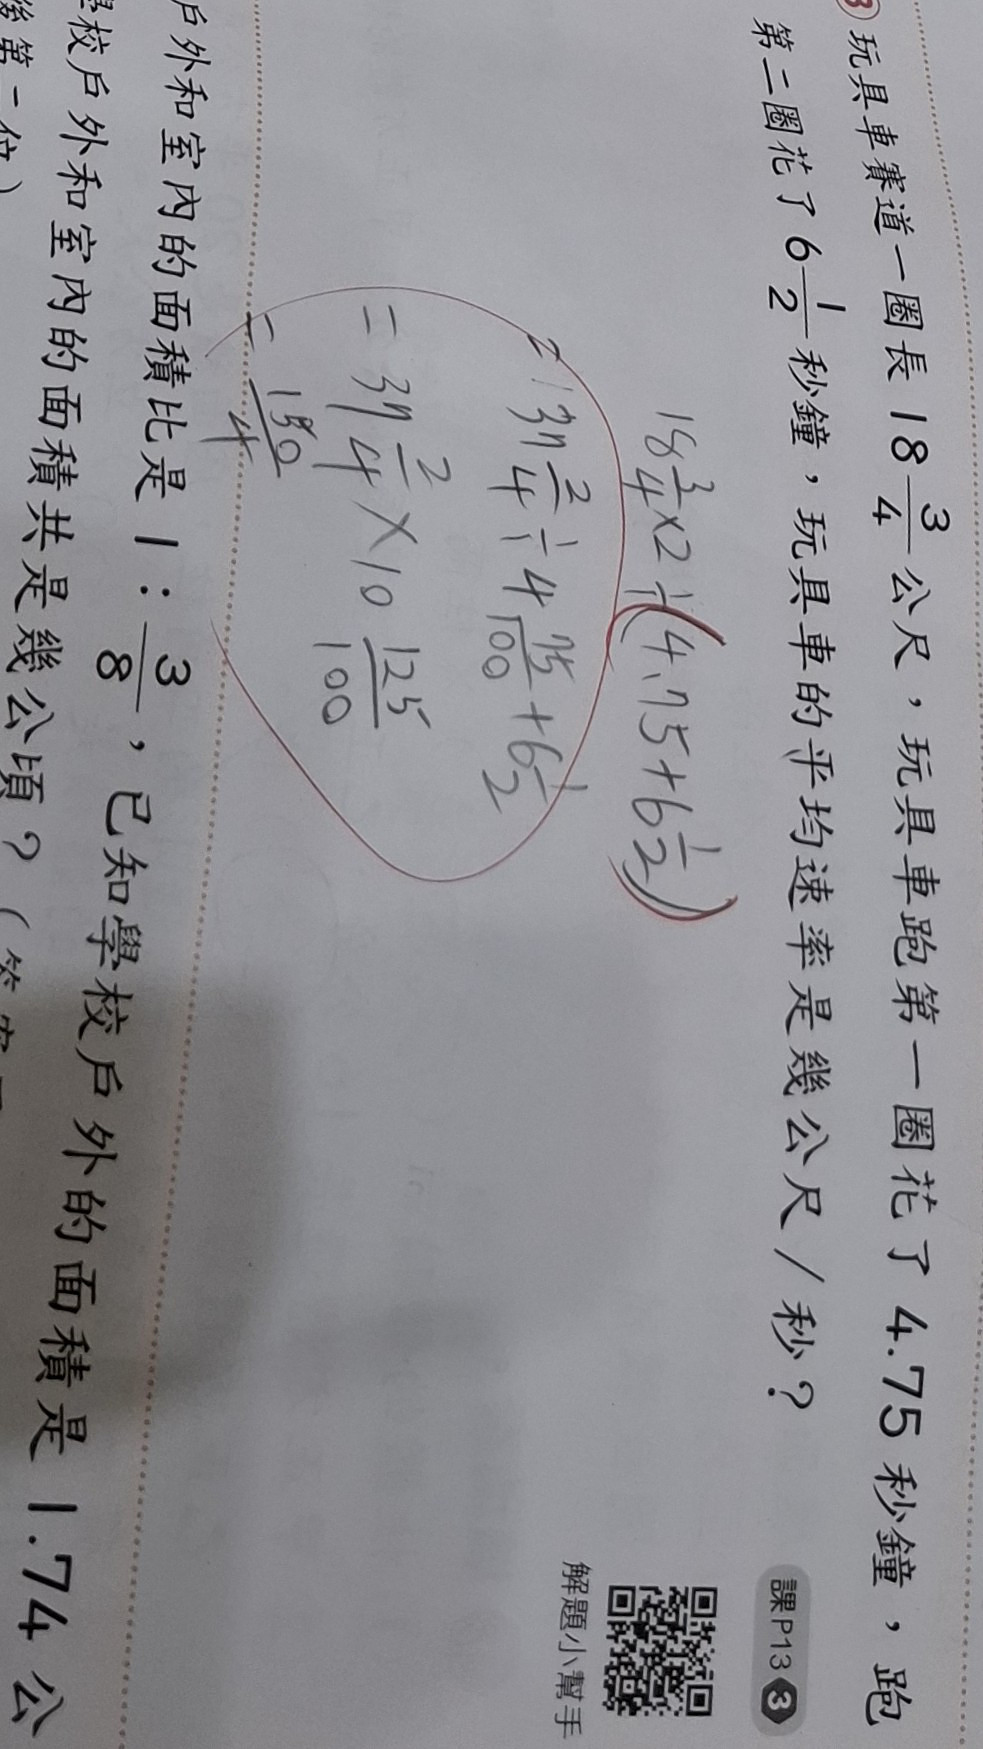 ③ 玩具車賽道一圈長 18 3/4 公尺，玩具車跑第一圈花了 4.75 秒鐘，跑
第二圈花了 6 1/2 秒鐘，玩具車的平均速率是幾公尺／秒？
課P13 ③
解題小幫手
18 3/4 × 2 ÷ (4.75 + 6 1/2)
= 37 2/4 ÷ 4 75/100 + 6 1/2
= 37 2/4 × 10 125/100
= 150/4
戶外和室內的面積比是 1：3/8，已知學校戶外的面積是 1.74 公
學校戶外和室內的面積共是幾公頃？（答案
後第一位）